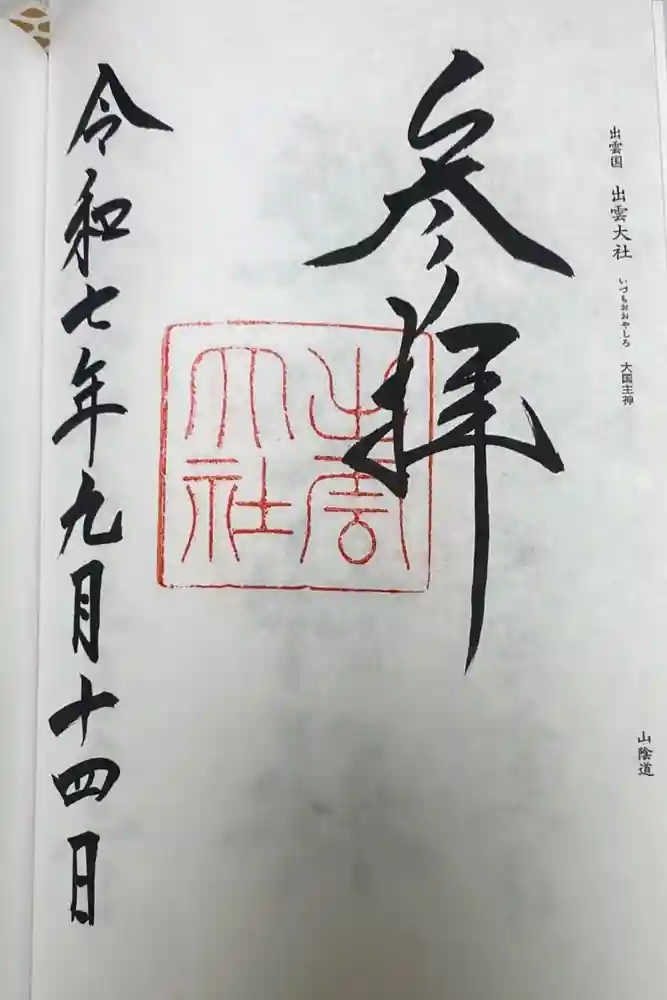 出雲国 出雲大社 いづもおおやしろ 大国主神
山陰道
参拝
出雲
大社
令和七年九月十四日